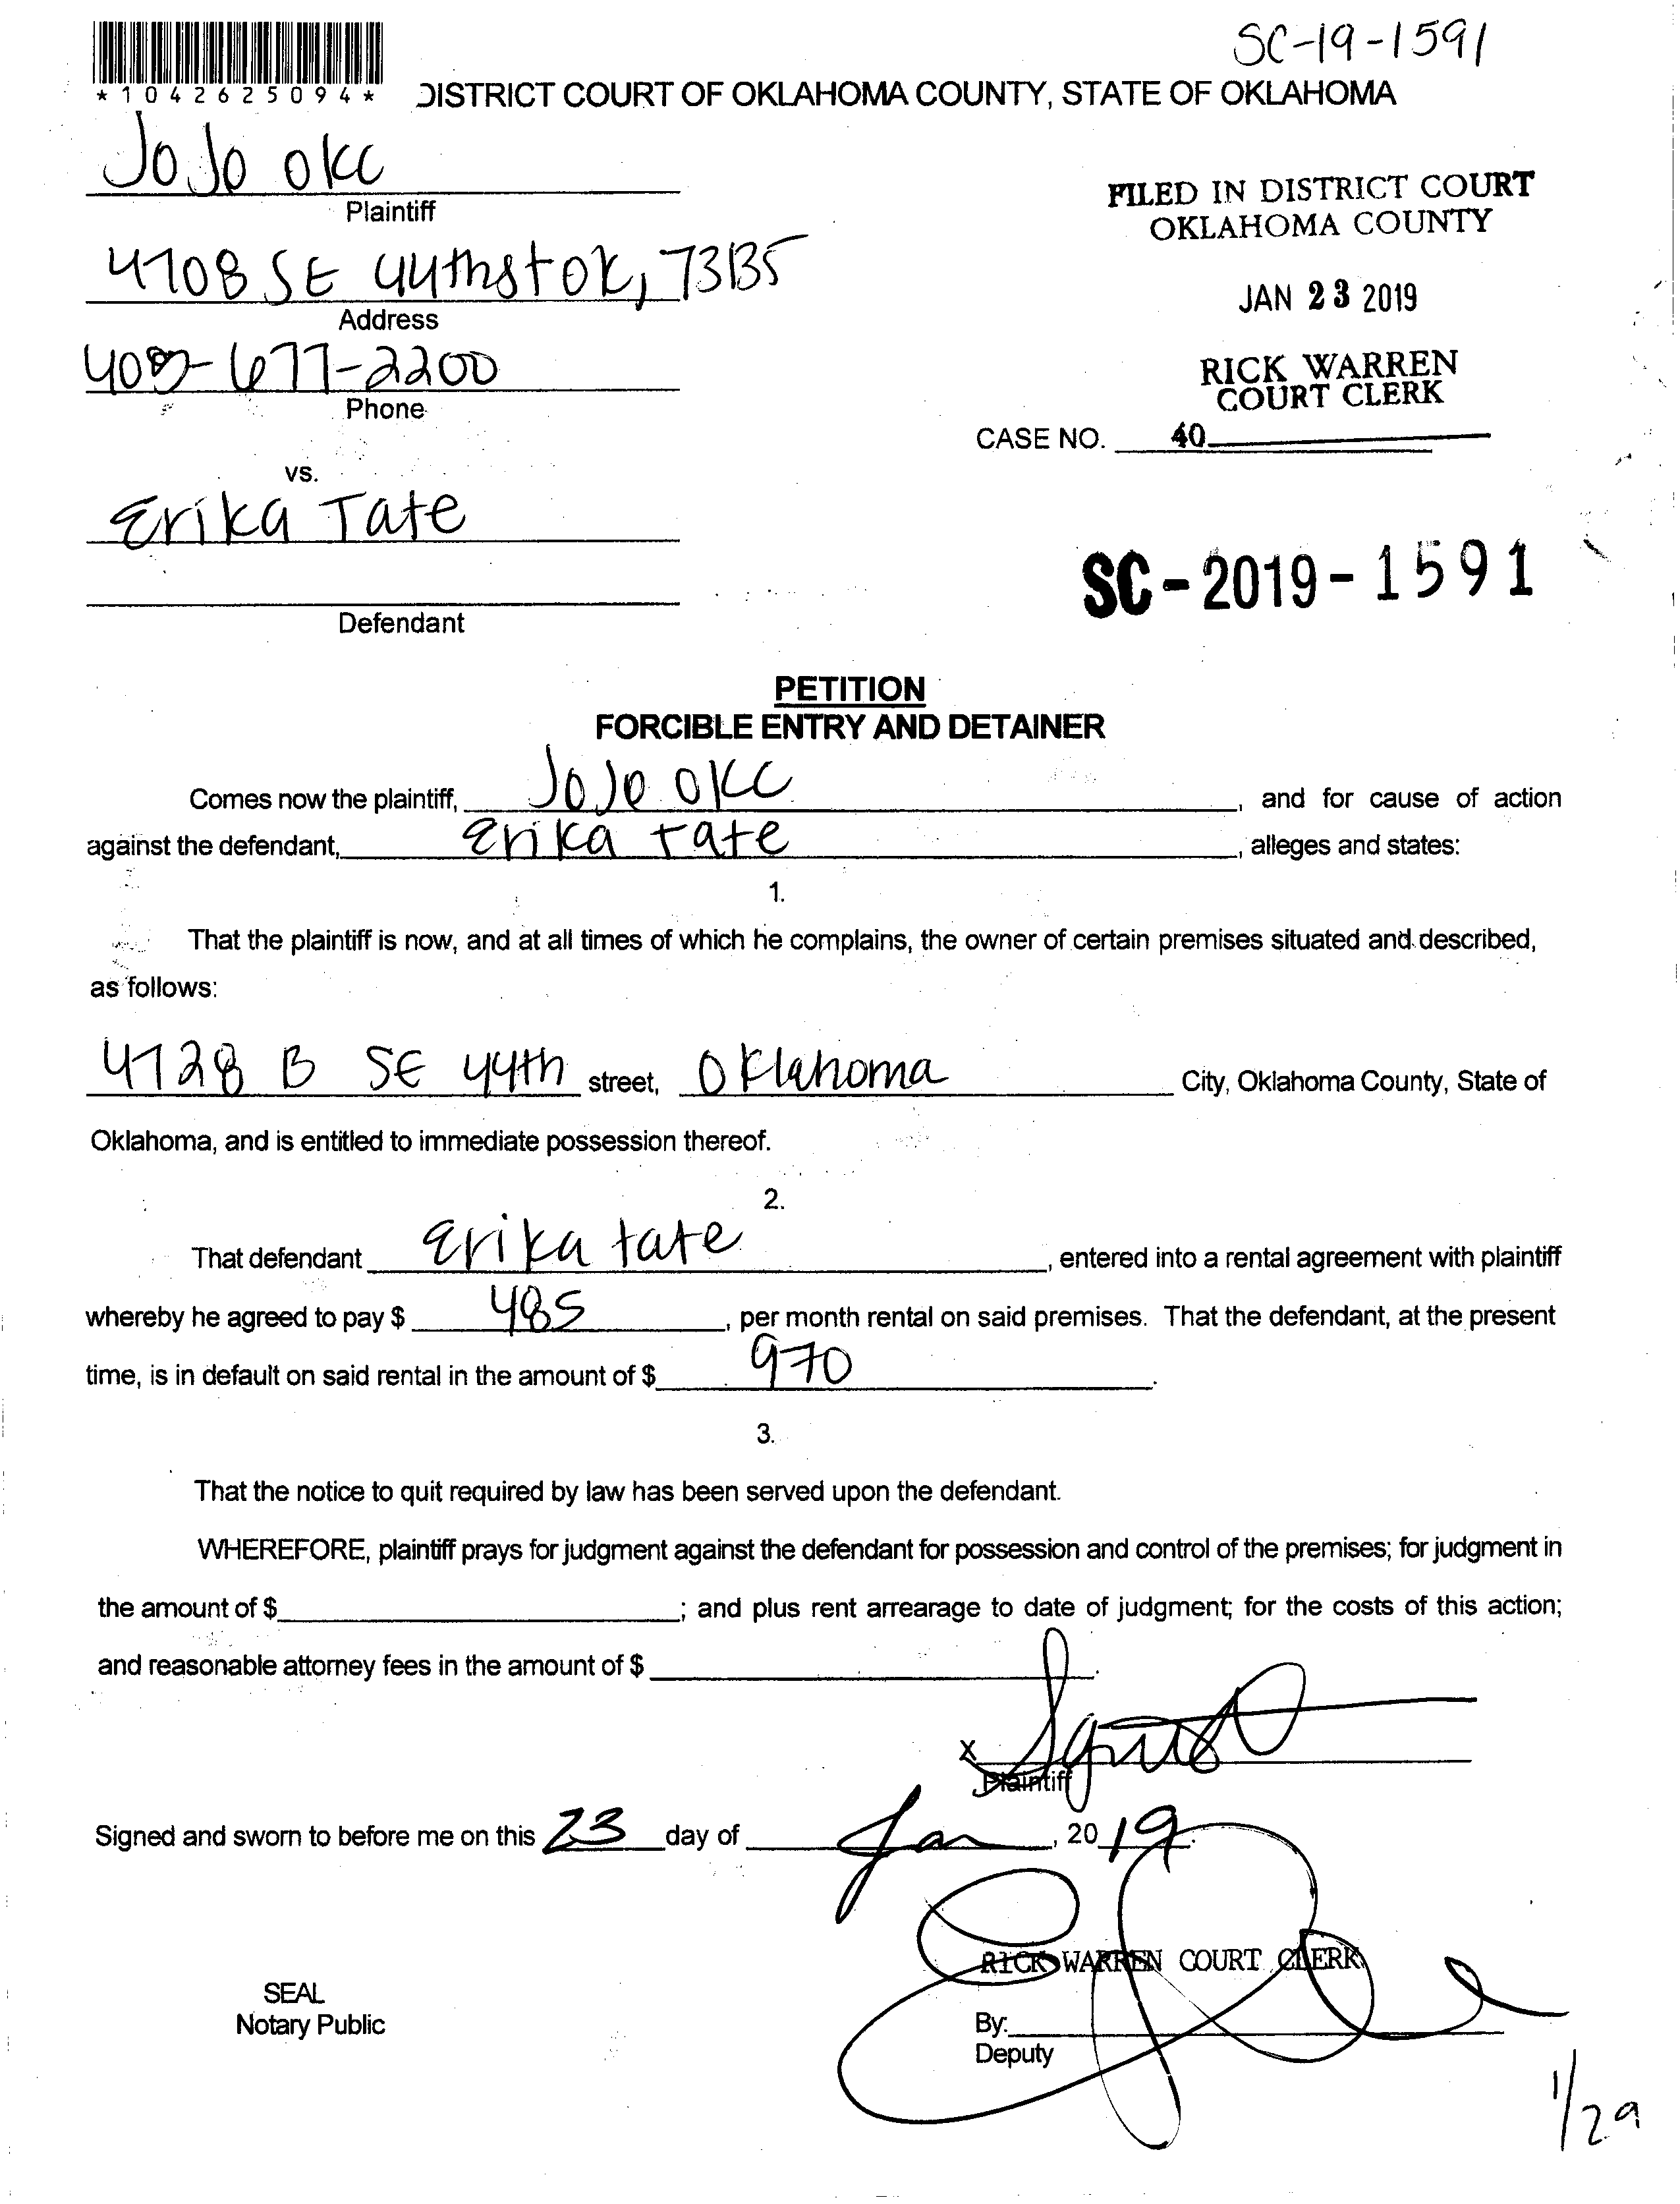 SC-19-1591
*1042625094*
DISTRICT COURT OF OKLAHOMA COUNTY, STATE OF OKLAHOMA
JoJo OKC
Plaintiff
FILED IN DISTRICT COURT
OKLAHOMA COUNTY
4708 SE 44th st OK, 73135
Address
JAN 23 2019
677-2200
Phone
RICK WARREN
COURT CLERK
CASE NO. 40
vs.
Erika Tate
Defendant
SC-2019-1591
PETITION
FORCIBLE ENTRY AND DETAINER
Comes now the plaintiff, JoJo OKC, and for cause of action
against the defendant, Erika Tate, alleges and states:
1.
That the plaintiff is now, and at all times of which he complains, the owner of certain premises situated and described,
as follows:
4728 B SE 44th street, Oklahoma City, Oklahoma County, State of
Oklahoma, and is entitled to immediate possession thereof.
2.
That defendant Erika tate, entered into a rental agreement with plaintiff
whereby he agreed to pay $ 485, per month rental on said premises. That the defendant, at the present
time, is in default on said rental in the amount of $ 970.
3.
That the notice to quit required by law has been served upon the defendant.
WHEREFORE, plaintiff prays for judgment against the defendant for possession and control of the premises; for judgment in
the amount of $; and plus rent arrearage to date of judgment; for the costs of this action;
and reasonable attorney fees in the amount of $.
X
Plaintiff
Signed and sworn to before me on this 23 day of Jan, 2019.
RICK WARREN COURT CLERK
SEAL
Notary Public
By:
Deputy
1/29